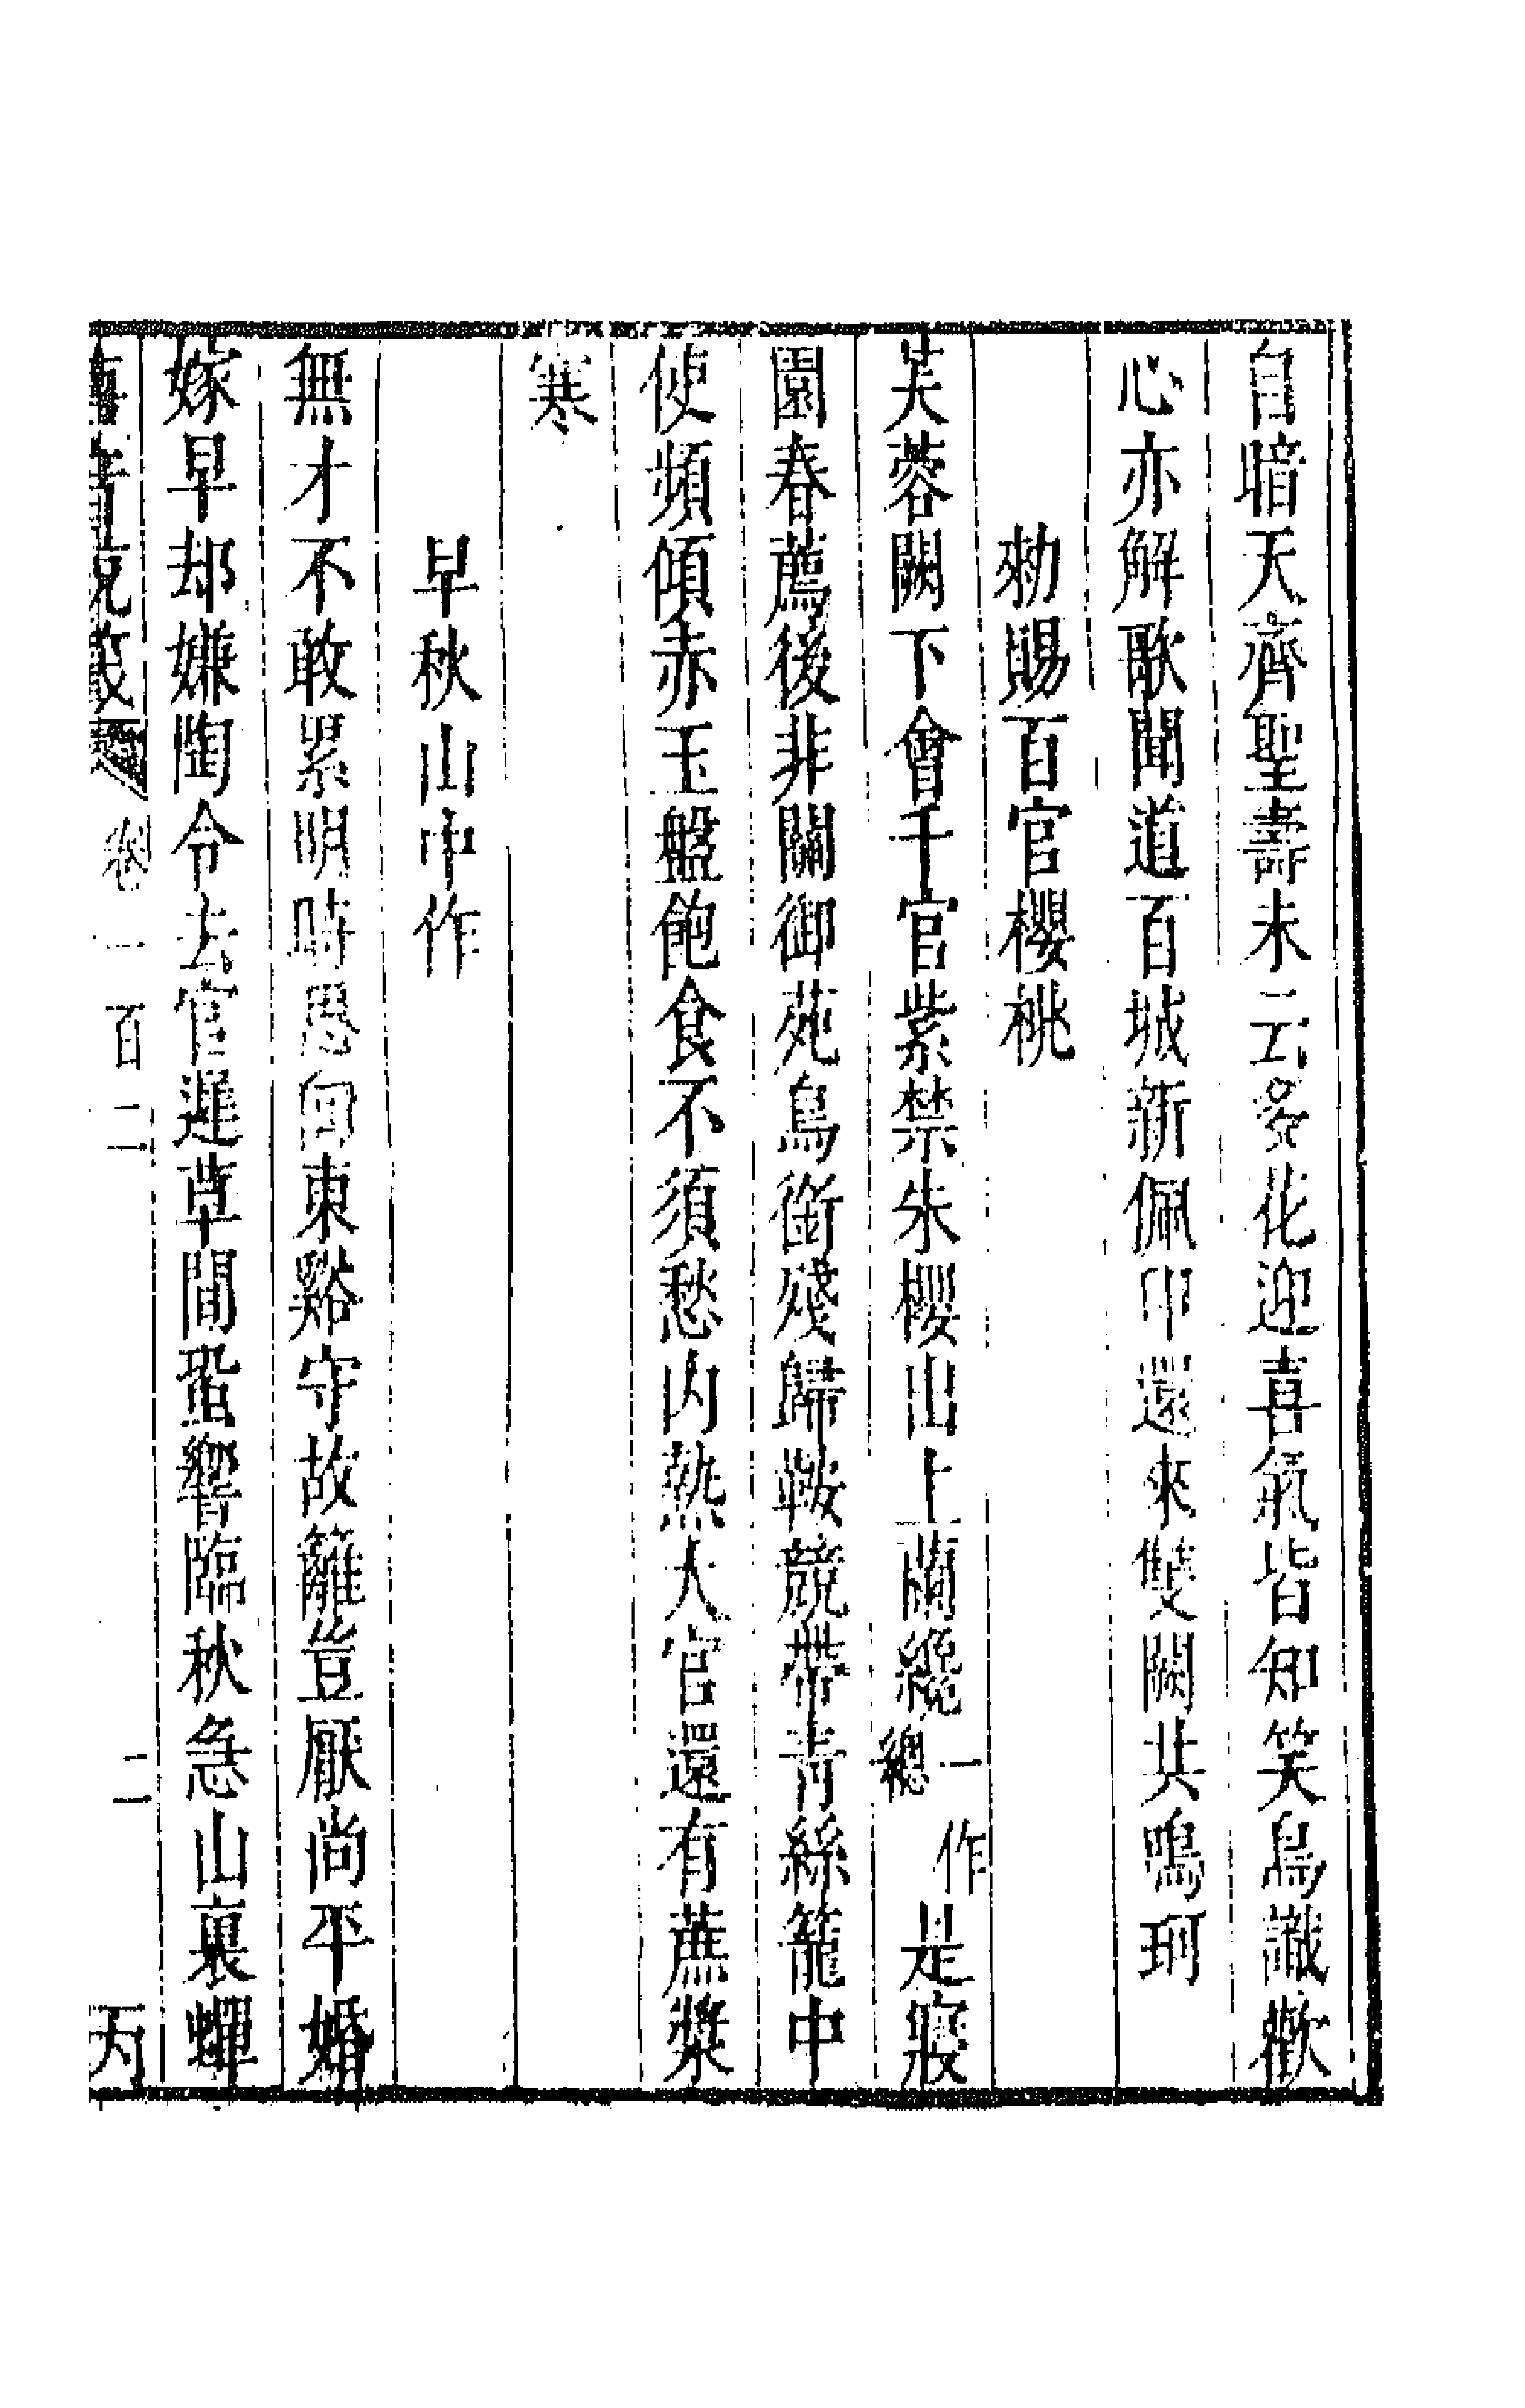 自暗天齊聖壽未云多花迎喜氣皆知笑鳥識歡
心亦解歌聞道百城新佩印還來雙闕共鳴珂
勑賜百官櫻桃
芙蓉闕下會千官紫禁朱櫻出上蘭纔一作總是寢
園春薦後非關御苑鳥銜殘歸鞍競帶青絲籠中
使頻傾赤玉盤飽食不須愁內熱大官還有蔗漿
寒
早秋山中作
無才不敢累明時思向東谿守故籬豈厭尚平婚
嫁早却嫌陶令去官遲草間蛩響臨秋急山裏蟬
唐音統籤 卷一百二 二 丙